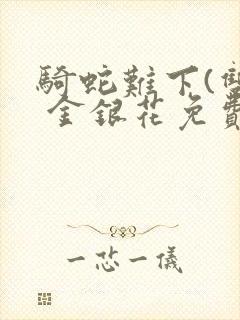 騎蛇難下(雙
金銀花免費
一芯一儀